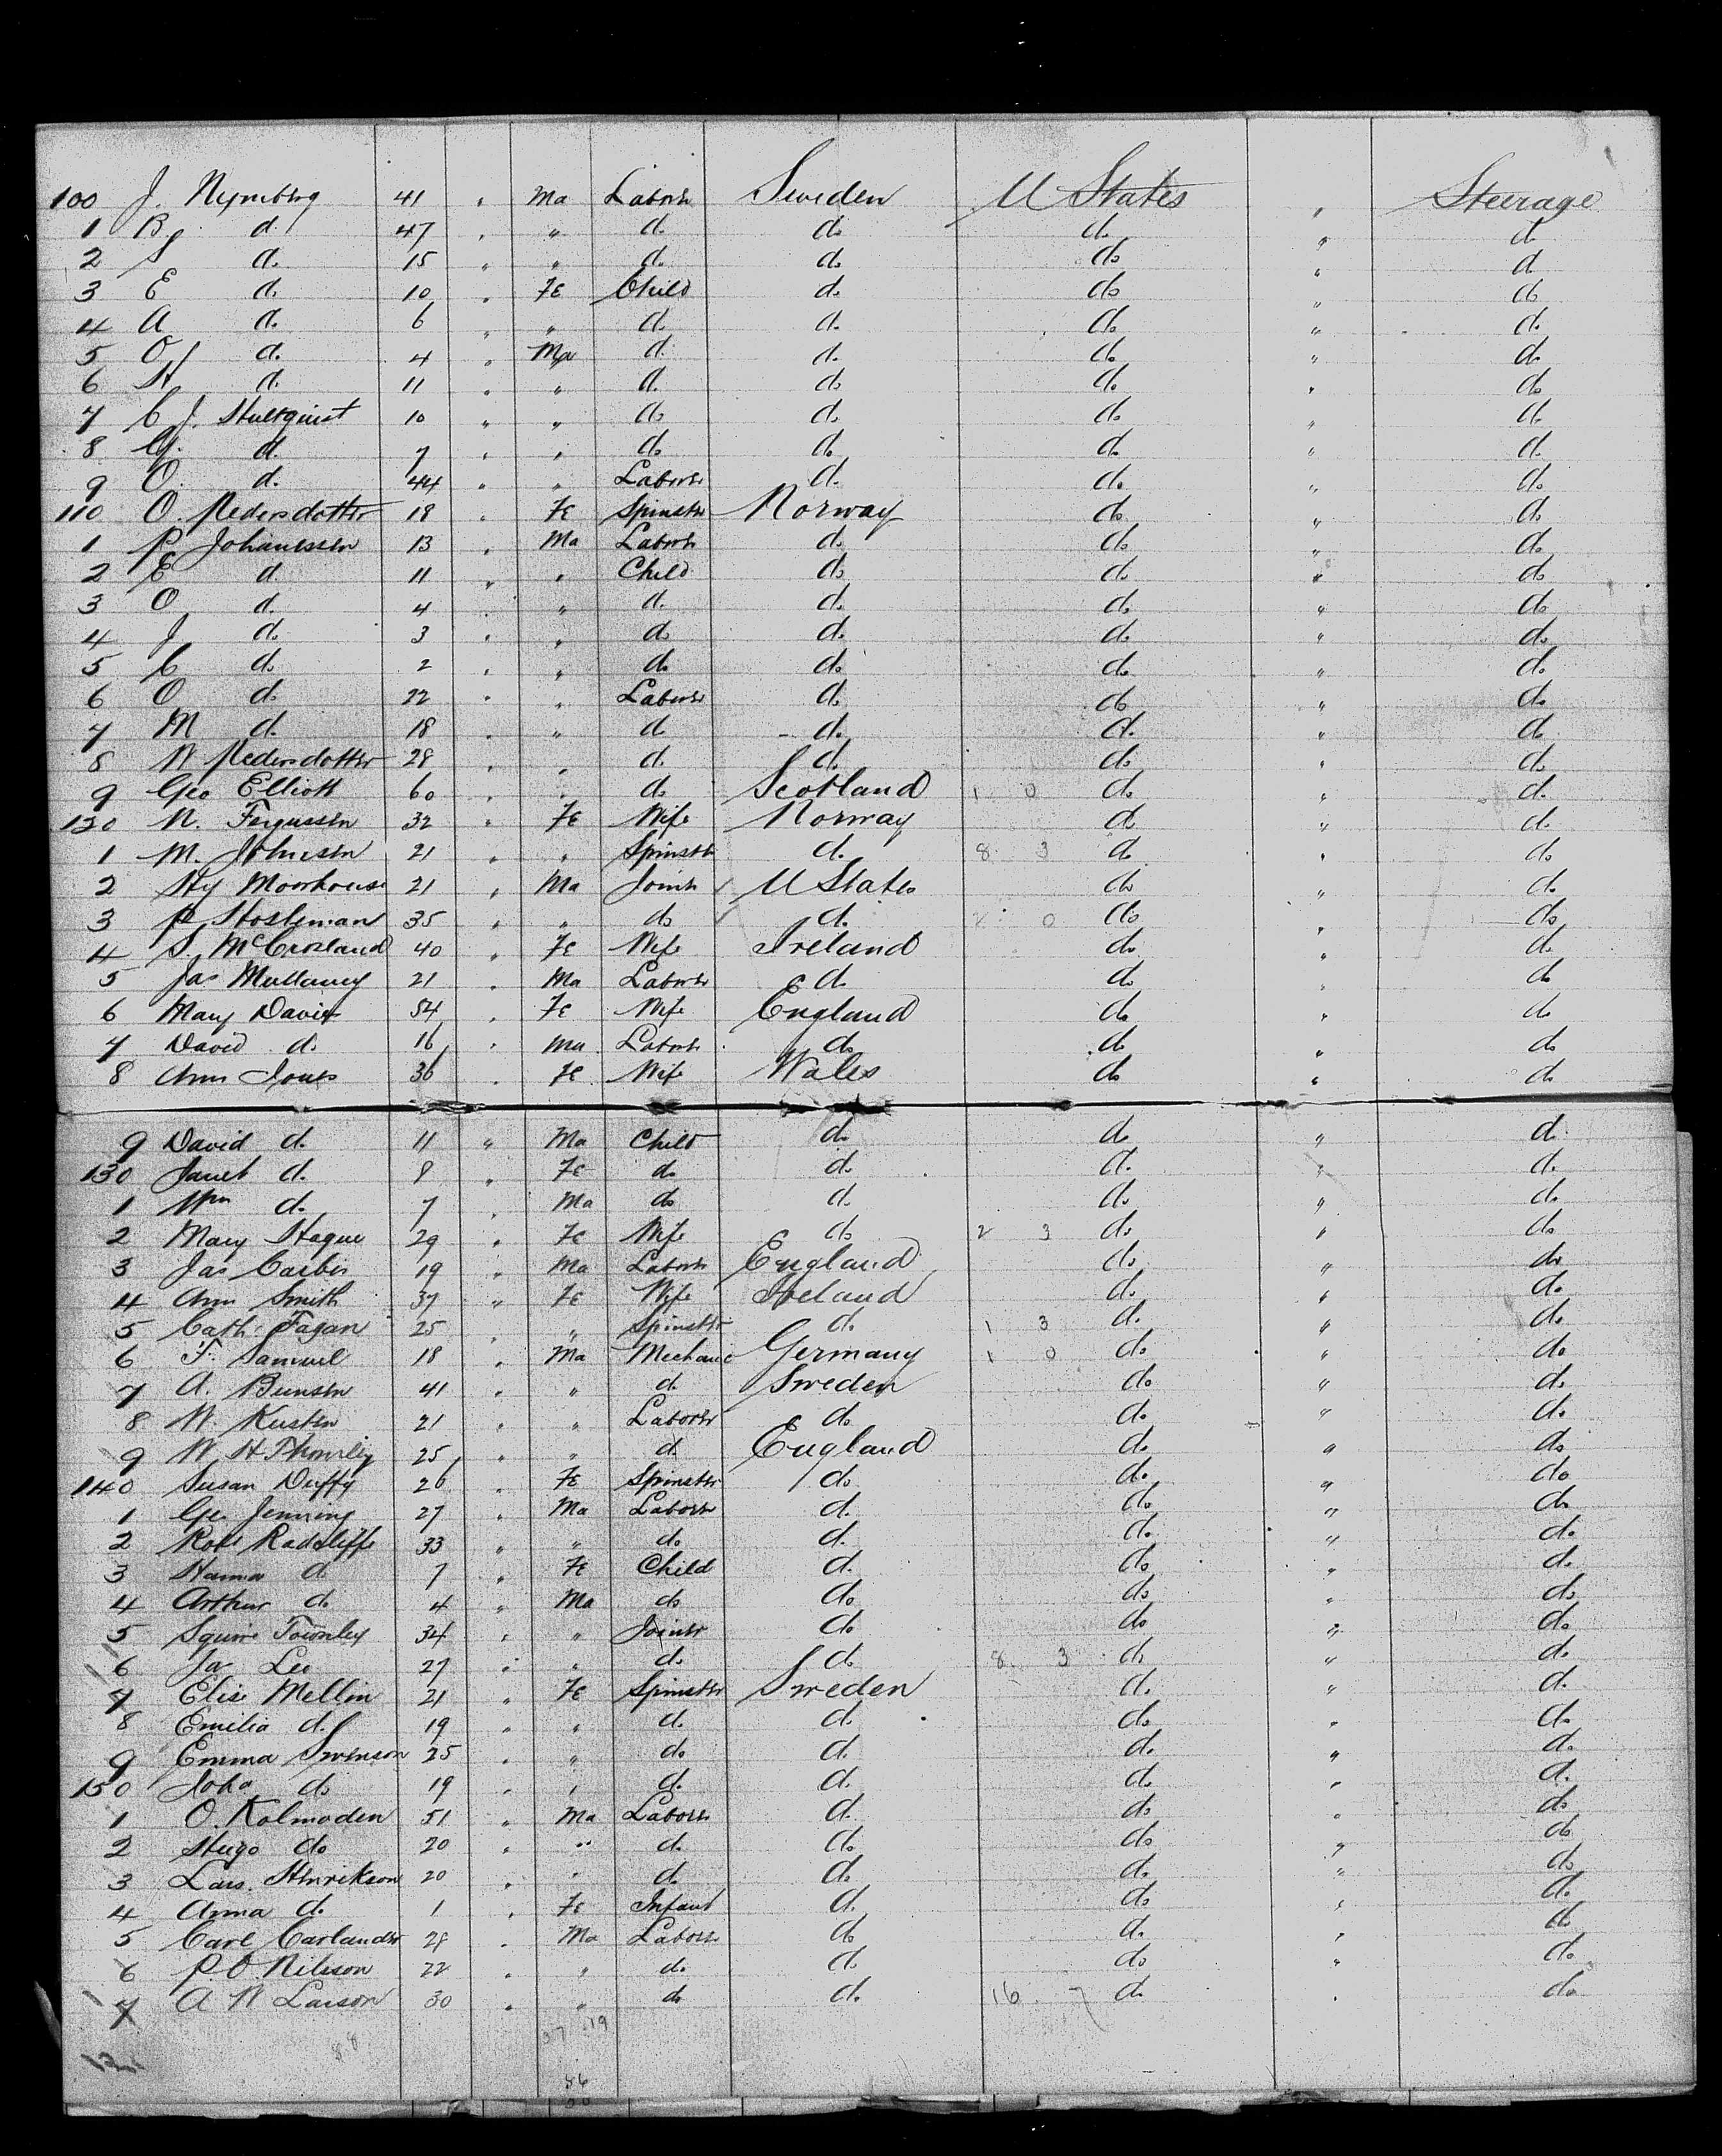 100 J. Nymberg 41 " Ma Laborer Sweden U States " Steerage
1 B. d. 47 " " d. do do " do
2 S d. 15 " " d. do do " d
3 E d. 10 " Fe Child do do " do
4 A d. 6 " " d. d. do " do
5 O d. 4 " Ma d. d. do " do
6 H d. 11 " " d. do do " do
7 C J. Hultquist 10 " " do do do " do
8 G. d. 7 " " do do do " do
9 O. d. 44 " " Laborer d. do " do
110 O. Pedersdotter 18 " Fe Spinster Norway do " do
1 P. Johanessen 13 " Ma Laborer do do " do
2 E d. 11 " " Child do do " do
3 O d. 4 " " d. do do " do
4 J do 3 " " do do do " do
5 C do 2 " " do do do " do
6 O do 22 " " Laborer do do " do
7 M d. 18 " " d d. d. " do
8 N Pedersdotter 28 " " d. d. do " do
9 Geo Elliott 60 " " do Scotland 1 0 do " d.
120 N. Fergussen 32 " Fe Wife Norway do " do
1 M. Johnsen 21 " " Spinster d. 8 3 do " do
2 Hy Moorhouse 21 " Ma Joiner U States do " do
3 P. Hosleman 35 " " do d. 2 0 do " do
4 S. McCrosland 40 " Fe Wife Ireland do " do
5 Jas Mullaney 21 " Ma Laborer d. do " do
6 Mary Davis 54 " Fe Wife England do " do
7 David do 16 " Ma Laborer do do " do
8 Ann Jones 36 " Fe Wife Wales do " do
9 David d. 11 " Ma Child do do " d.
130 Janet d. 8 " Fe do d. d. " d.
1 Wm d. 7 " Ma do d. do " do
2 Mary Hague 29 " Fe Wife do 2 3 do " do
3 Jas Corbin 19 " Ma Laborer England do " do
4 Ann Smith 37 " Fe Wife Ireland do " do
5 Cath. Fagan 25 " " Spinster do 1 3 d. " do
6 F. Samuel 18 " Ma Mechanic Germany 1 0 do " do
7 A. Bunsen 41 " " d. Sweden do " do
8 W. Kusten 21 " " Laborer do do " do
9 W H Thornley 25 " " d. England do " do
140 Susan Duffy 26 " Fe Spinster do do " do
1 Geo Jenning 27 " Ma Laborer d. do " do
2 Robt Radcliffe 33 " " do d. do " do
3 Hanna d 7 " Fe Child d. do " do
4 Arthur do 4 " Ma do do do " do
5 Squire Townley 34 " " Joiner do do " do
6 Ja Lee 27 " " d. d. 8 3 do " do
7 Elise Mellin 21 " Fe Spinster Sweden d. " d.
8 Emilia d. 19 " " d. d. do " do
9 Emma Swenson 25 " " do d. do " do
150 Joha do 19 " " d. d. d. " d.
1 O. Kolmoden 51 " Ma Laborer d. do " do
2 Hugo do 20 " " d. do do " do
3 Lars. Henrikson 20 " " d. d. d. " do
4 Anna do 1 " Fe Infant d. do " d.
5 Carl Carlander 28 " Ma Laborer do d. " do
6 P. O. Nilsson 22 " " do d. do " do
7 A W Larson 30 " " do d. 16 7 d. " do
37 19
88